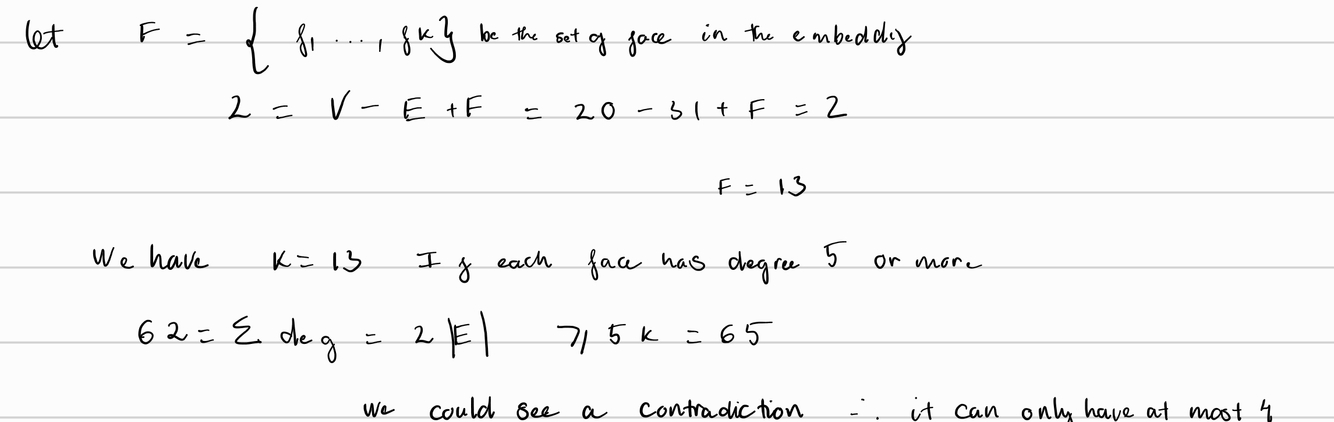 let F = { f1, ..., fK} be the set of face in the embeddig
2 = V - E + F = 20 - 31 + F = 2
F = 13
We have K = 13 If each face has degree 5 or more
62 = Σ deg = 2 |E| ⩾ 5 K = 65
we could see a contradiction ∴ it can only have at most 4